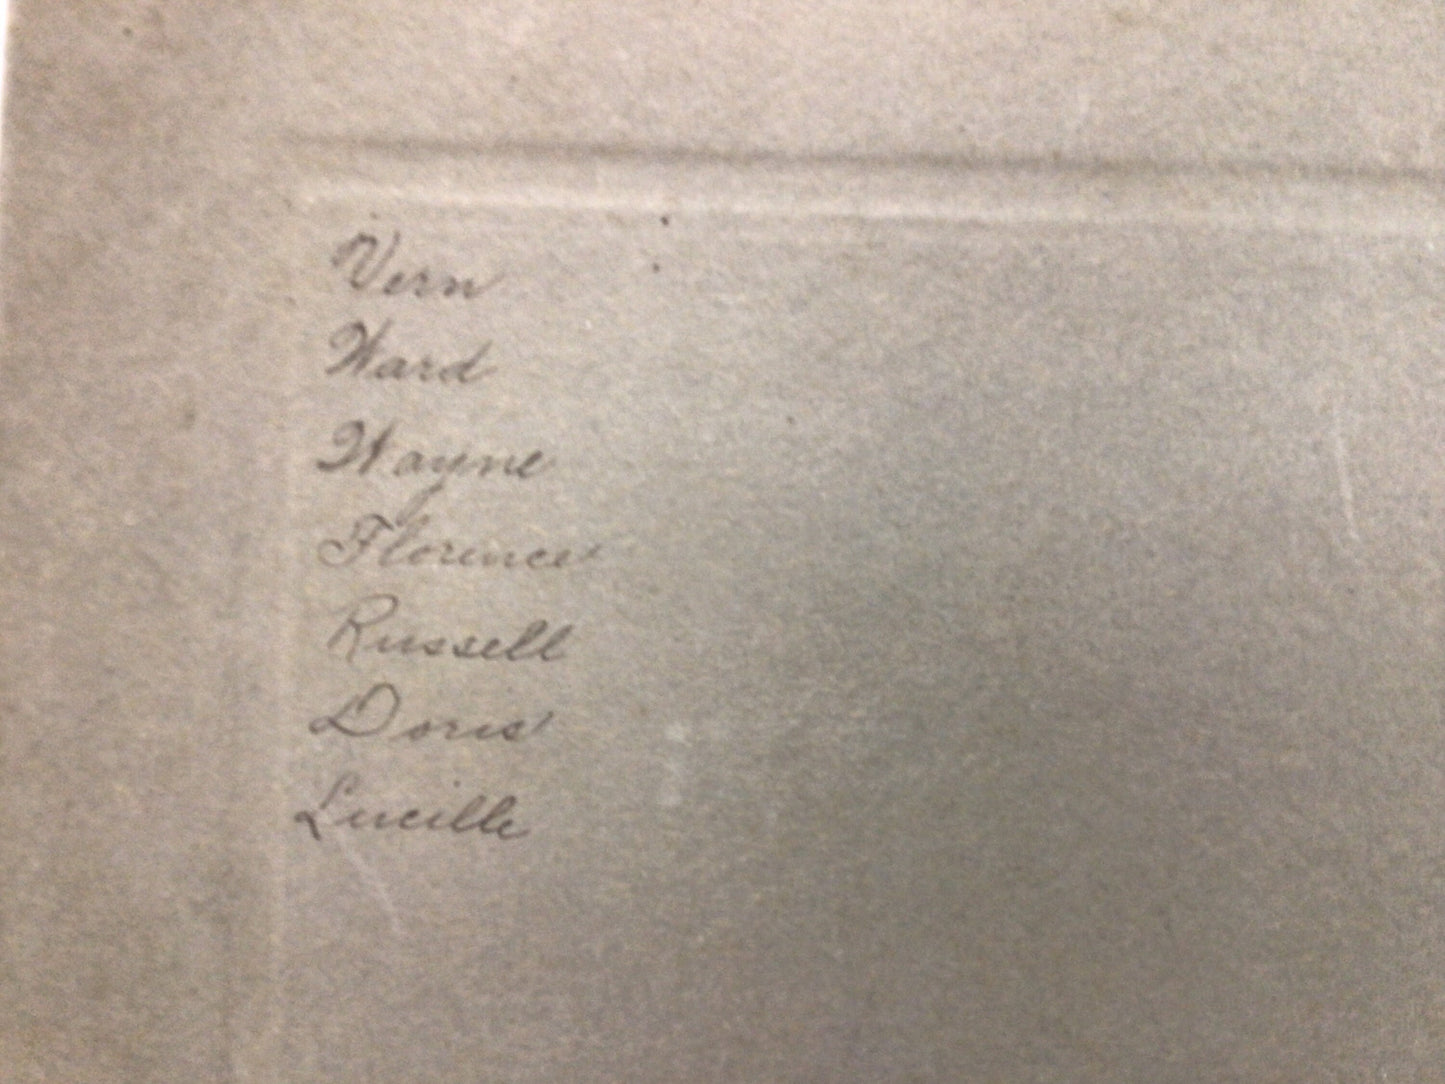 Vern
Ward
Wayne
Florence
Russell
Doris
Lucille